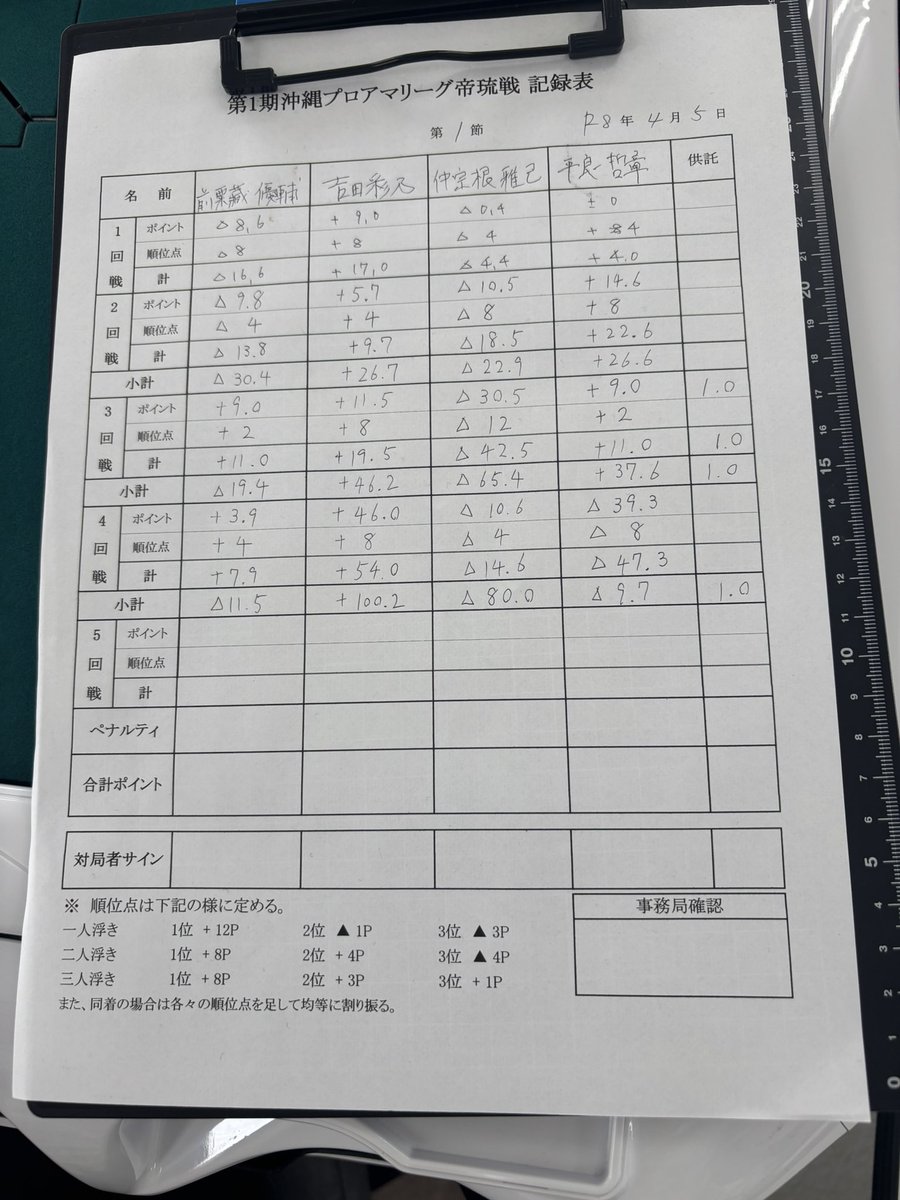 第1期沖縄プロアマリーグ帝琉戦 記録表
第 1 節 R8 年 4 月 5 日
名 前 前粟蔵 優輔 吉田彩乃 仲宗根 雅己 平良 哲章 供託
1回戦 ポイント △8,6 +9,0 △0,4 ±0
順位点 △8 +8 △4 +4
計 △16,6 +17,0 △4,4 +4.0
2回戦 ポイント △9.8 +5.7 △10.5 +14.6
順位点 △4 +4 △8 +8
計 △13.8 +9.7 △18.5 +22.6
小計 △30.4 +26.7 △22.9 +26.6
3回戦 ポイント +9.0 +11.5 △30.5 +9.0 1.0
順位点 +2 +8 △12 +2
計 +11.0 +19.5 △42.5 +11.0 1.0
小計 △19.4 +46.2 △65.4 +37.6 1.0
4回戦 ポイント +3.9 +46.0 △10.6 △39.3
順位点 +4 +8 △4 △8
計 +7.9 +54.0 △14.6 △47.3
小計 △11.5 +100.2 △80.0 △9.7 1.0
5回戦 ポイント
順位点
計
ペナルティ
合計ポイント
対局者サイン
※ 順位点は下記の様に定める。
一人浮き 1位 +12P 2位 ▲1P 3位 ▲3P
二人浮き 1位 +8P 2位 +4P 3位 ▲4P
三人浮き 1位 +8P 2位 +3P 3位 +1P
また、同着の場合は各々の順位点を足して均等に割り振る。
事務局確認